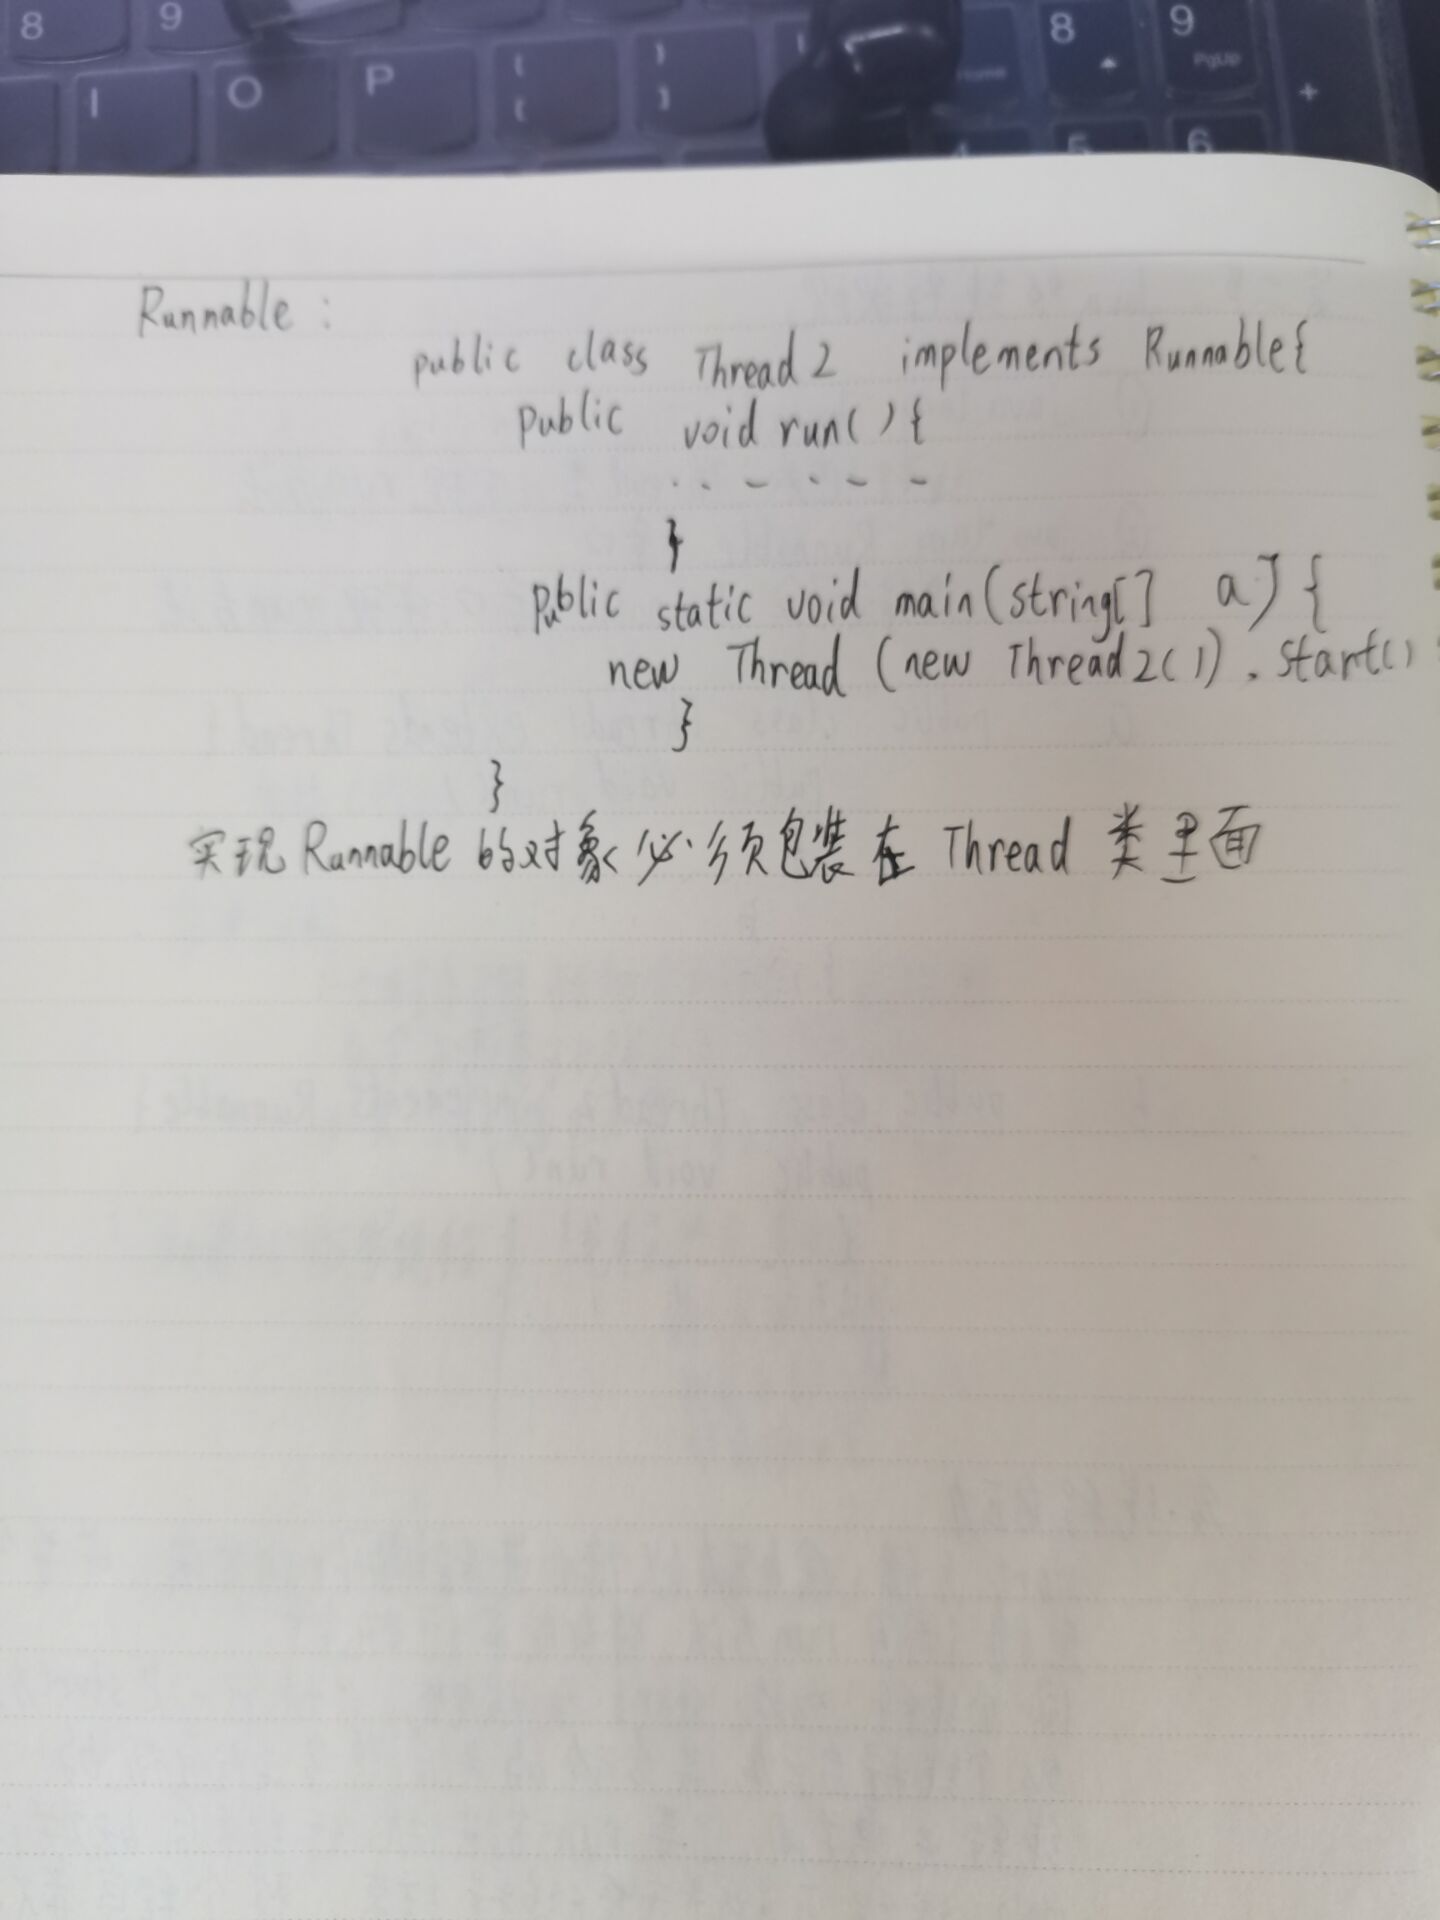 8 9 8 9
Home PgUp
I O P { } +
4 5 6
Runnable :
public class Thread2 implements Runnable{
public void run(){
......
}
public static void main(string[] a){
new Thread (new Thread2()).start()
}
}
实现Runnable的对象必须包装在Thread类里面